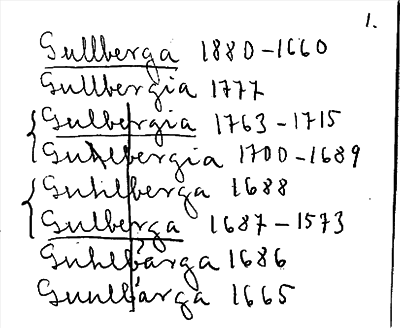 1.
Gullberga 1880-1660
Gullbergia 1777
Gulbergia 1763-1715
Guhlbergia 1700-1689
Guhlberga 1688
Gulberga 1687-1573
Guhlbarga 1686
Guulbårga 1665